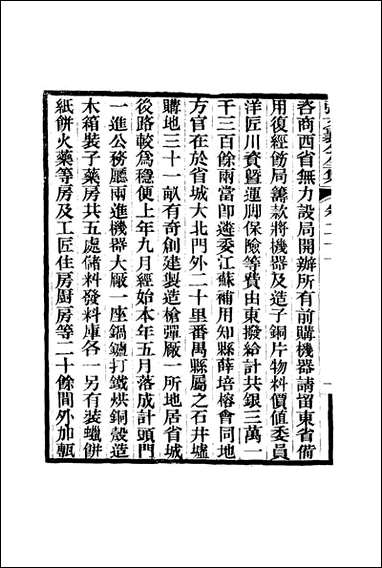 咨商西省無力設局開辦所有前購機器請留東省備
用復經飭局籌款將機器及造子銅片物料價值委員
洋匠川資暨運脚保險等費由東撥給計共銀三萬一
千三百餘兩當卽遴委江蘇補用知縣薛培榕會同地
方官在於省城大北門外二十里番禺縣屬之石井墟
購地三十一畝有奇創建製造槍彈廠一所地居省城
後路較為穩便上年九月經始本年五月落成計頭門
一進公務廳兩進機器大廠一座鍋鑪打鐵烘銅殼造
木箱裝子藥房共五處儲料發料庫各一另有裝蠟餅
紙餅火藥等房及工匠住房厨房等二十餘間外加甎